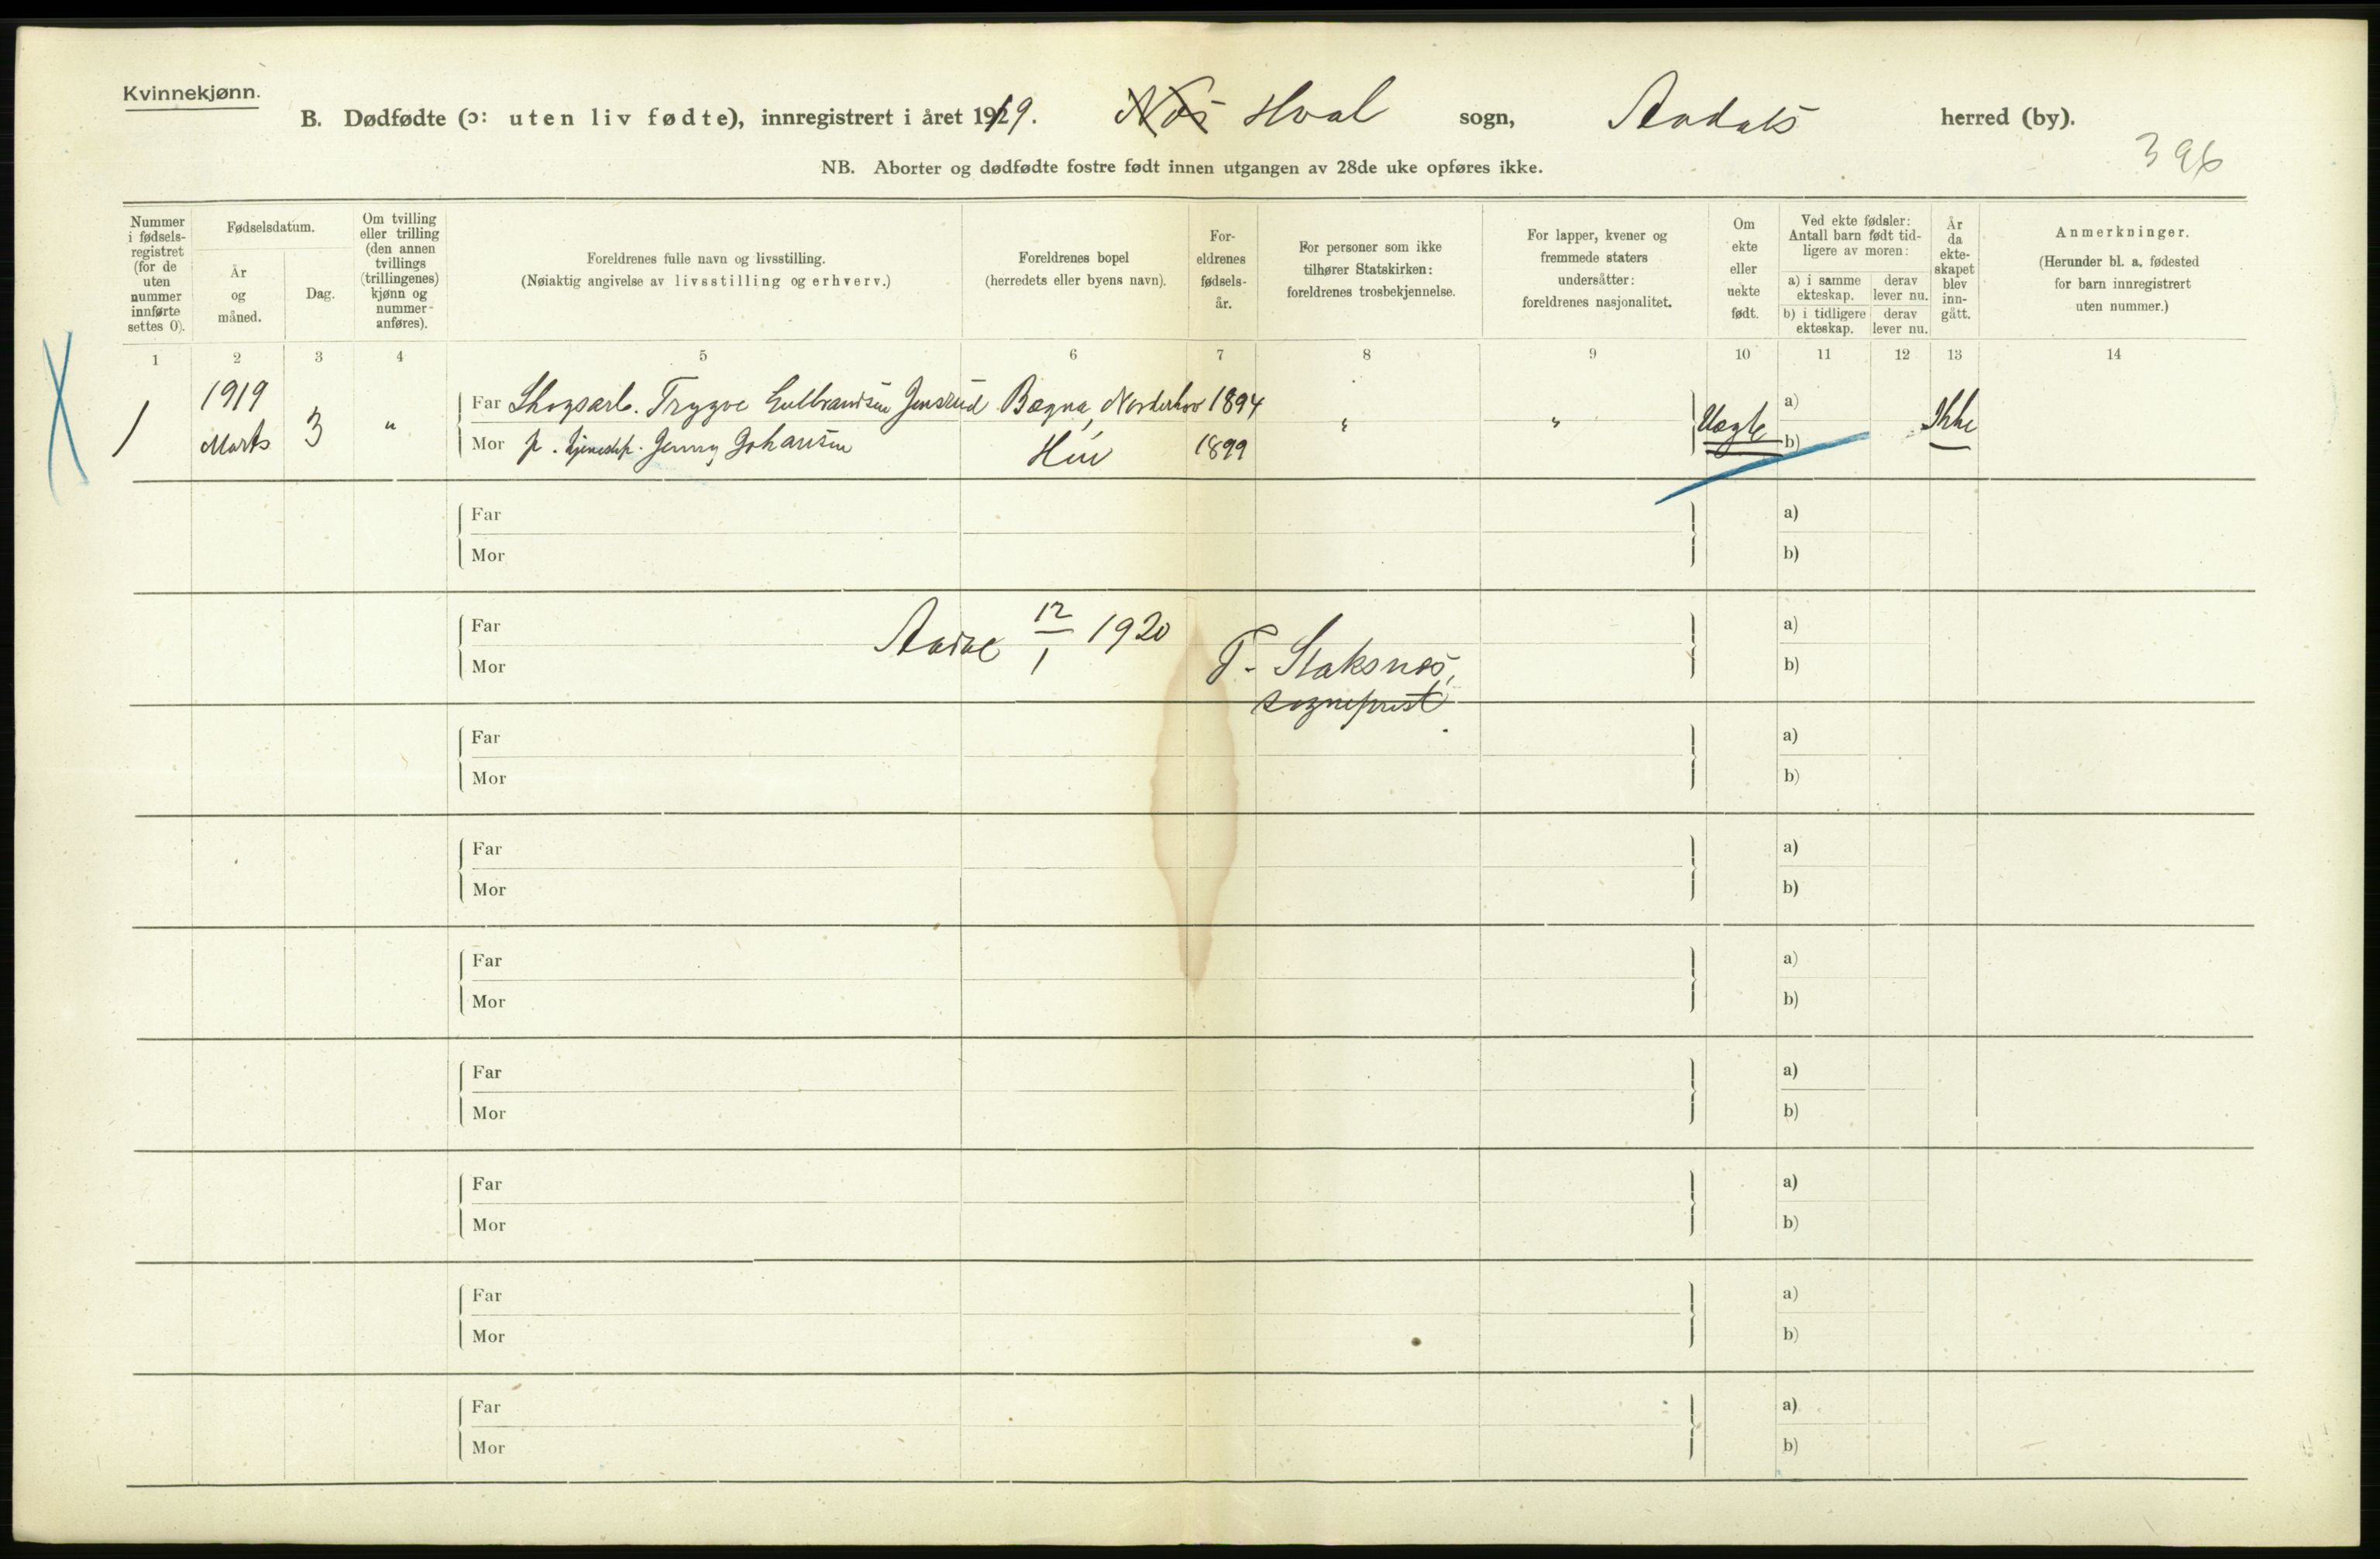 Kvinnekjønn.
B. Dødfødte (ɔ: uten liv fødte), innregistrert i året 1919. Nes Hval sogn, Aadals herred (by).
396
NB. Aborter og dødfødte fostre født innen utgangen av 28de uke opføres ikke.
Nummer i fødsels-registret (for de uten nummer innførte settes 0).
Fødselsdatum.
År og måned.
Dag.
Om tvilling eller trilling (den annen tvillings (trillingenes) kjønn og nummer anføres).
Foreldrenes fulle navn og livsstilling.
(Nøiaktig angivelse av livsstilling og erhverv.)
Foreldrenes bopel
(herredets eller byens navn).
For-eldrenes fødsels-år.
For personer som ikke tilhører Statskirken: foreldrenes trosbekjennelse.
For lapper, kvener og fremmede staters undersåtter: foreldrenes nasjonalitet.
Om ekte eller uekte født.
Ved ekte fødsler: Antall barn født tid-ligere av moren:
a) i samme ekteskap.
derav lever nu.
b) i tidligere ekteskap.
derav lever nu.
År da ekte-skapet blev inn-gått.
Anmerkninger.
(Herunder bl. a. fødested for barn innregistrert uten nummer.)
1 2 3 4 5 6 7 8 9 10 11 12 13 14
1 1919 Marts 3 "
Far Skogsarb. Trygve Gulbrandsen Jensrud Bægna, Norderhov 1894 " "
Mor p. tjenestep. Jenny Johansen Hen 1899
Uægte a) b) Ikke
Far a)
Mor b)
Far a)
Mor b)
Aadal 12/1 1920
T. Staksnes,
sogneprest.
Far a)
Mor b)
Far a)
Mor b)
Far a)
Mor b)
Far a)
Mor b)
Far a)
Mor b)
Far a)
Mor b)
Far a)
Mor b)